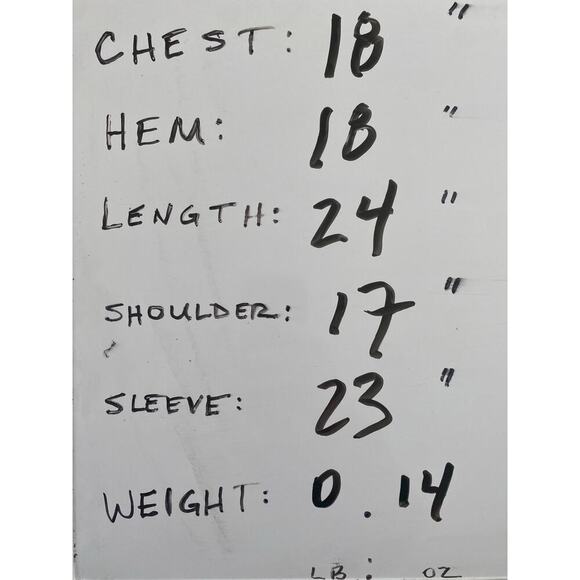 CHEST: 18 "
HEM: 18 "
LENGTH: 24 "
SHOULDER: 17 "
SLEEVE: 23 "
WEIGHT: 0.14
LB : OZ